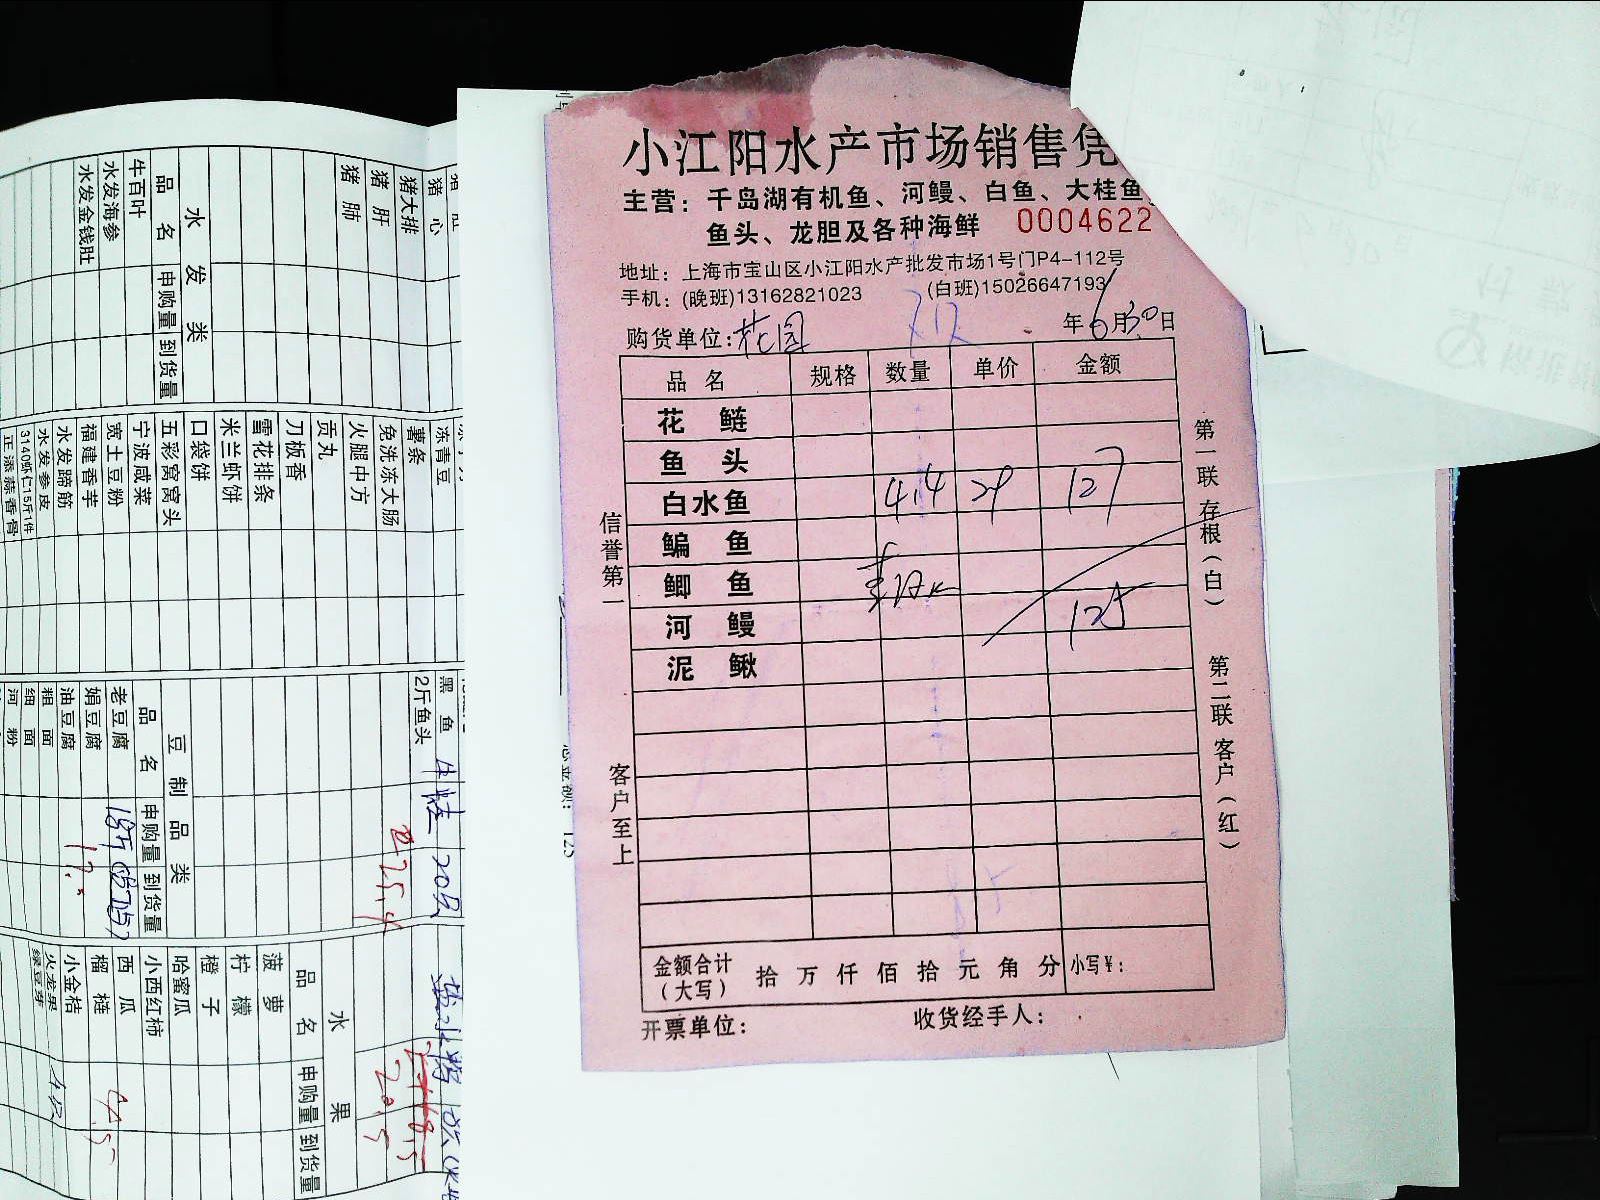 小江阳水产市场销售凭
主营：千岛湖有机鱼、河鳗、白鱼、大桂鱼
鱼头、龙胆及各种海鲜 0004622
地址：上海市宝山区小江阳水产批发市场1号门P4-112号
手机：(晚班)13162821023 (白班)15026647193
购货单位：花园 年6月30日
品名 规格 数量 单价 金额
花鲢
鱼头
白水鱼 4.4 29 127
鳊鱼
鲫鱼
河鳗 125
泥鳅
金额合计（大写） 拾万仟佰拾元角分 小写¥：
开票单位： 收货经手人：
信誉第一 客户至上
第一联 存根（白） 第二联 客户（红）
猪心
猪大排
猪肝
猪肺
水发类
品名 申购量 到货量
牛百叶
水发海参
水发金钱肚
冻青豆
薯条
免洗冻大肠
火腿中方
贡丸
刀板香
雪花排条
米兰虾饼
口袋饼
五彩窝窝头
宁波咸菜
宽土豆粉
福建香芋
水发蹄筋
水发参皮
3140虾仁15斤1件
正添蒜香骨
黑鱼
2斤鱼头
豆制品类
品名 申购量 到货量
老豆腐
娟豆腐
油豆腐
粗面
细面
河粉
水果
品名 申购量 到货量
菠萝
柠檬
橙子
哈蜜瓜
小西红柿
西瓜
榴梿
小金桔
火龙果
绿豆芽